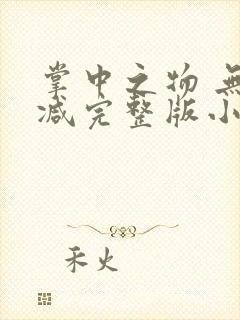 掌中之物 無
减完整版小
禾火